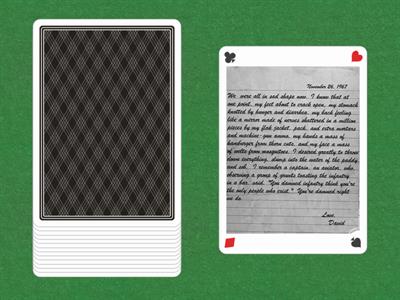 November 26, 1967
We were all in sad shape now. I know that at
one point, my feet about to crack open, my stomach
knotted by hunger and diarrhea, my back feeling
like a mirror made of nerves shattered in a million
pieces by my flak jacket, pack, and extra mortars
and machine-gun ammo, my hands a mass of
hamburger from thorn cuts, and my face a mass
of welts from mosquitoes, I desired greatly to throw
down everything, slump into the water of the paddy
and sob. I remember a captain, an aviator, who,
observing a group of grunts toasting the infantry
in a bar, said, "You damned infantry think you're
the only people who exist." You're damned right
we do.
Love,
David